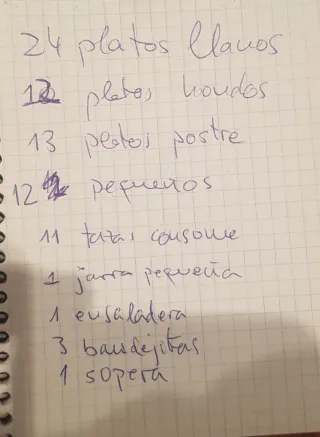 24 platos llanos
12 platos hondos
13 platos postre
12 pequeños
11 tazas consome
1 jarra pequeña
1 ensaladera
3 bandejitas
1 sopera